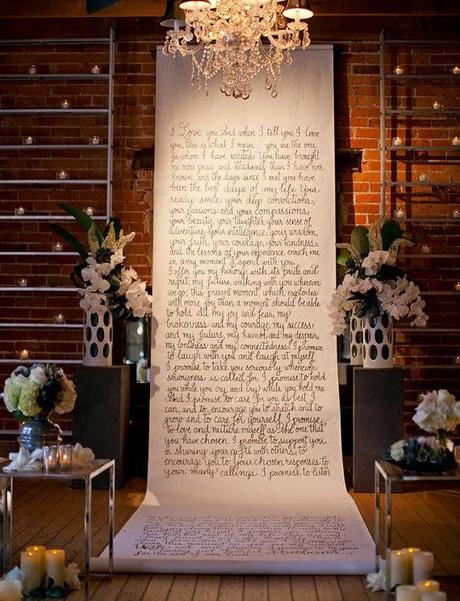 I Love you. And when I tell you I love
you, this is what I mean: you are the one
for whom I have waited. You have brought
me more peace and steadiness than I have ever
known and the days since I met you have
been the best days of my life. Your
ready smile, your deep convictions,
your passions and your compassions,
your beauty, your laughter, your sense of
adventure, your intelligence, your wisdom,
your faith, your courage, your kindness
and the lessons of your experience enrich me
in every moment I spend with you.
I offer you my history with its pride and
regret, my future, walking with you wherever
we go, this present moment, which explodes
with more joy than a moment should be able
to hold. All my joy and fear, my
brokenness and my courage, my success
and my failure, my humor and my despair,
my loneliness and my connectedness. I promise
to laugh with you and laugh at myself.
I promise to take you seriously whenever
seriousness is called for. I promise to hold
you while you cry and cry while you hold me.
And I promise to care for you as best I
can, and to encourage you to stretch and to
grow and to care for yourself. I promise
to love and nurture myself as the one that
you have chosen. I promise to support you
in sharing your gifts with others, to
encourage you to your chosen responses to
your many callings. I promise to listen